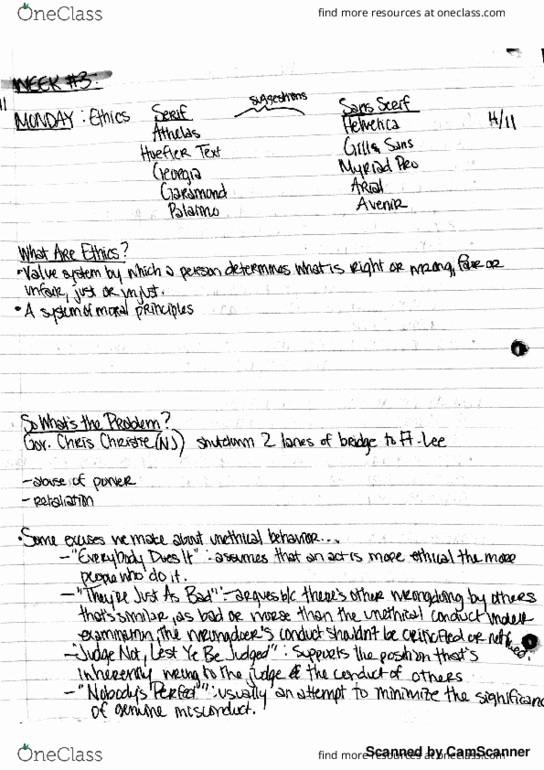 OneClass
find more resources at oneclass.com
WEEK #3:
MONDAY: Ethics
suggestions
4/11
Serif
Athelas
Hoefler Text
Georgia
Garamond
Palatino
Sans Serif
Helvetica
Gill Sans
Myriad Pro
Arial
Avenir
What Are Ethics?
• Value system by which a person determines what is right or wrong, fair or
unfair, just or unjust.
• A system of moral principles
So What's the Problem?
Gov. Chris Christie (NJ) shutdown 2 lanes of bridge to Ft. Lee
- abuse of power
- retaliation
• Some excuses we make about unethical behavior...
- "Everybody Does It": assumes that an act is more ethical the more
people who do it.
- "They're Just As Bad": argues b/c there's other wrongdoing by others
that's similar, as bad or worse than the unethical conduct under
examination, the wrongdoer's conduct shouldn't be criticized or
- "Judge Not, Lest Ye Be Judged": supports the position that's
inherently wrong to the judge & the conduct of others
- "Nobody's Perfect": usually an attempt to minimize the significance
of genuine misconduct.
OneClass
find more resources at oneclass.com
Scanned by CamScanner